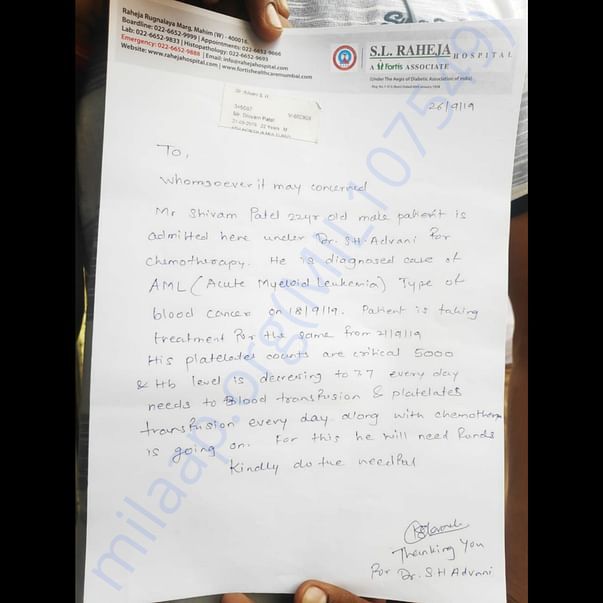 Raheja Rugnalaya Marg, Mahim (W) - 400016.
Boardline: 022-6652-9999 | Appointments: 022-6652-9666
Lab: 022-6652-9833 | Histopathology: 022-6652-9693
Emergency: 022-6652-9888 | Email: info@rahejahospital.com
Website: www.rahejahospital.com | www.fortishealthcaremumbai.com
S.L. RAHEJA HOSPITAL
A Fortis ASSOCIATE
(Under The Aegis of Diabetic Association of India)
Dr. Advani S. H.
Mr. Shivam Patel
22 Years M
26/9/19
To,
Whomsoever it may concerned
Mr Shivam Patel 22yr old male patient is
admitted here under Dr. SH. Advani for
chemotherapy. He is diagnosed case of
AML (Acute Myeloid Leukemia) Type of
blood cancer on 18/9/19. Patient is taking
treatment for the same from 21/9/19
His platelates counts are critical 5000
& Hb level is decresing to 7.7 every day
needs to Blood transfusion & platelates
transfusion every day along with chemotherapy
is going on. For this he will need Funds
Kindly do the needful
Thanking You
For Dr. SH Advani
milaap.org(MIL107549)